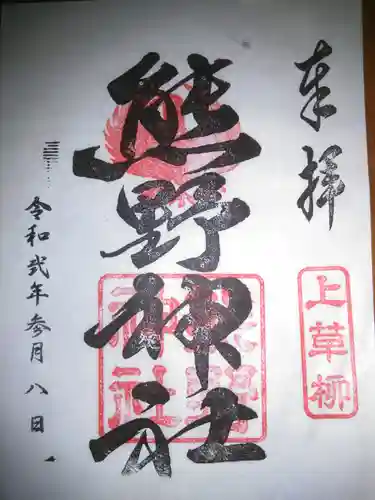 奉拝
上草柳
熊野神社
熊野神社
令和弐年参月八日